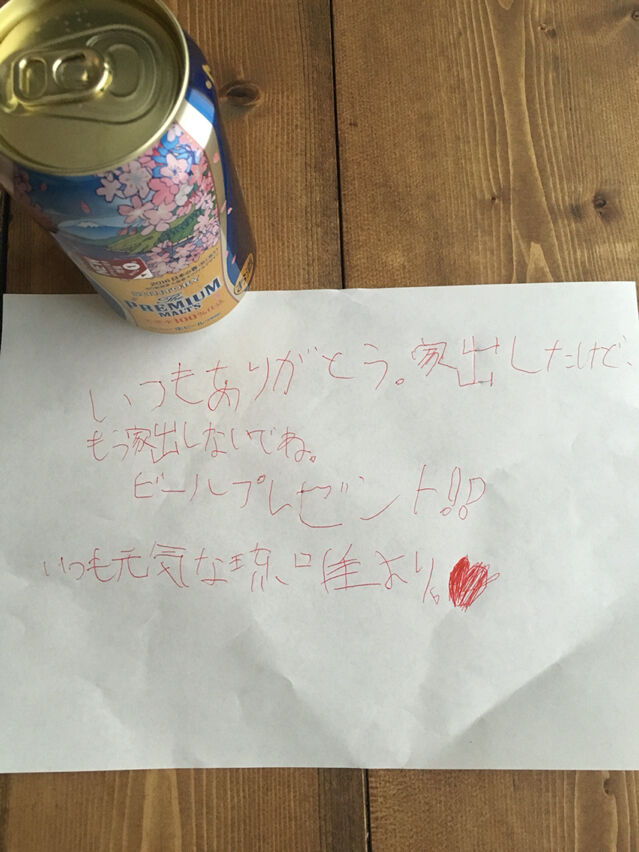 PREMIUM
MALTS
いつもありがとう。家出したけど、
もう家出しないでね。
ビールプレゼント!!
いつも元気な より。